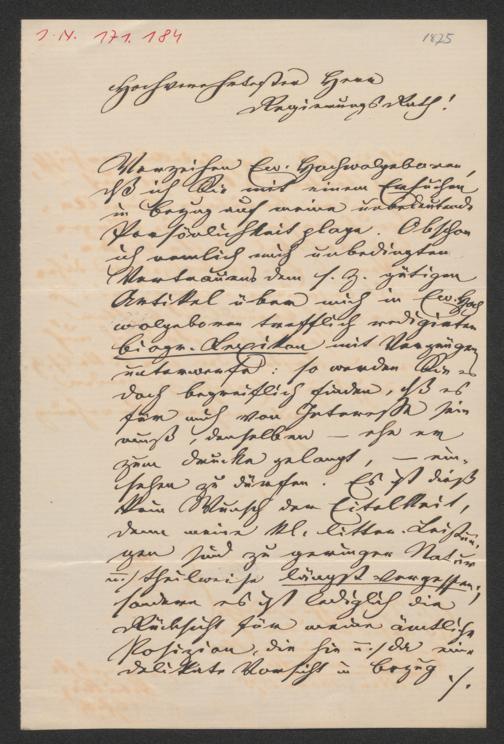 J.N. 171.184
1875
Hochverehrtester Herr
Regierungs Rath!
Verzeihen Ew. Hochwolgeboren,
dß ich Sie mit einem Ersuchen
in Bezug auf meine unbedeutende
Persönlichkeit plage. Obschon
ich nemlich mich unbedingten
Vertrauens dem s. Z. gütigen
Artikel über mich in Ew. Hoch
wolgeboren trefflich redigirten
biogr. Lexikon mit Vergnügen
unterwerfe: so werden Sie es
doch begreiflich finden, dß es
für mich von Interesse sein
muß, denselben — ehe er
zum Drucke gelangt, — ein-
sehen zu dürfen. Es ist dieß
kein Wunsch der Eitelkeit,
denn meine kl. litter. Leistun-
gen sind zu geringer Natur
u:/ theilweise längst vergessen,
sondern es ist lediglich die
Rücksicht für meine ämtliche
Position, die hie u:/ da eine
delikate Vorsicht in Bezug
./.